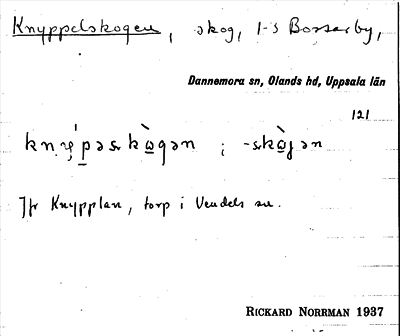 Knyppelskogen, skog, 1-3 Bossarby,
Dannemora sn, Olands hd, Uppsala län
121
Jfr Knypplan, torp i Vendels sn.
RICKARD NORRMAN 1937